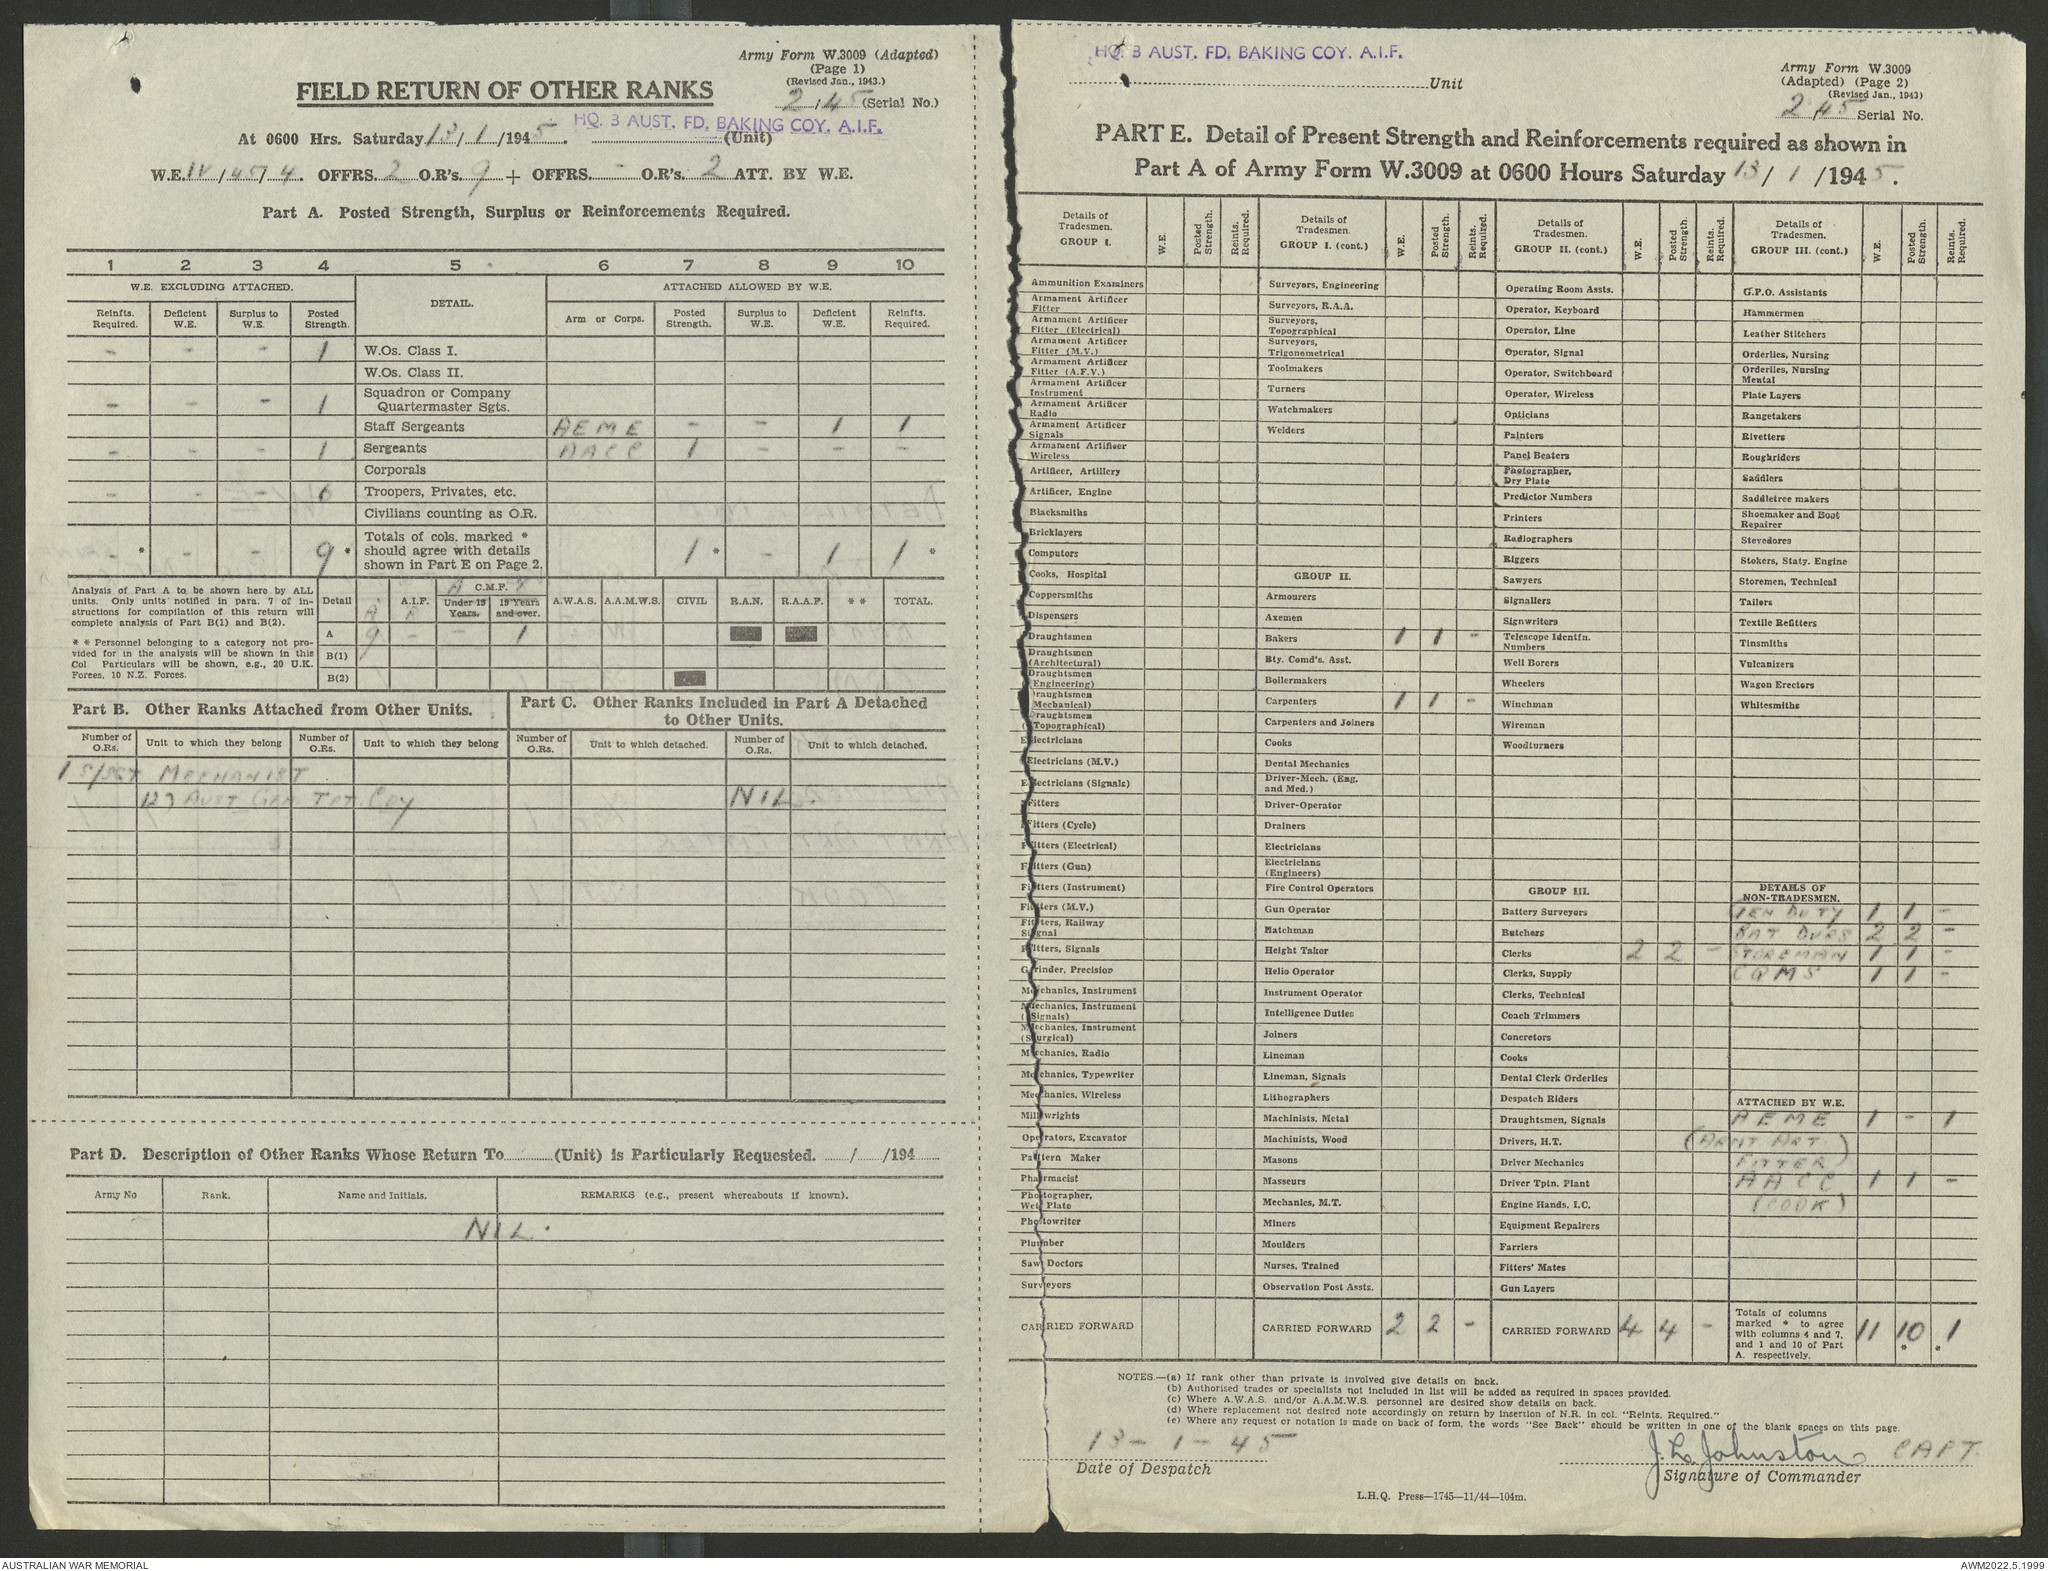 Army Form W.3009 (Adapted)
(Page 1)
(Revised Jan., 1943.)
FIELD RETURN OF OTHER RANKS
2/45 (Serial No.)
HQ. 3 AUST. FD. BAKING COY. A.I.F.
At 0600 Hrs. Saturday 13/1/1945. (Unit)
W.E. IV/45/4. OFFRS. 2 O.R's. 9 + OFFRS. - O.R's. 2 ATT. BY W.E.
Part A. Posted Strength, Surplus or Reinforcements Required.
1 2 3 4 5 6 7 8 9 10
W.E. EXCLUDING ATTACHED. DETAIL. ATTACHED ALLOWED BY W.E.
Reinfts. Required. Deficient W.E. Surplus to W.E. Posted Strength. Arm or Corps. Posted Strength. Surplus to W.E. Deficient W.E. Reinfts. Required.
- - - 1 W.Os. Class I.
W.Os. Class II.
- - - 1 Squadron or Company Quartermaster Sgts.
Staff Sergeants AEME - - 1 1
- - - 1 Sergeants AACC 1 - - -
Corporals
- - - 6 Troopers, Privates, etc.
Civilians counting as O.R.
- * - - 9 * Totals of cols. marked * should agree with details shown in Part E on Page 2. 1 * - 1 1 *
Analysis of Part A to be shown here by ALL units. Only units notified in para. 7 of instructions for compilation of this return will complete analysis of Part B(1) and B(2).
* * Personnel belonging to a category not provided for in the analysis will be shown in this Col Particulars will be shown, e.g., 20 U.K. Forces, 10 N.Z. Forces.
Detail A.I.F. C.M.F. Under 19 Years. 19 Years and over. A.W.A.S. A.A.M.W.S. CIVIL R.A.N. R.A.A.F. * * TOTAL.
A 9 - - 1
B(1)
B(2)
Part B. Other Ranks Attached from Other Units.
Part C. Other Ranks Included in Part A Detached to Other Units.
Number of O.Rs. Unit to which they belong Number of O.Rs. Unit to which they belong Number of O.Rs. Unit to which detached. Number of O.Rs. Unit to which detached.
1 S/SGT MECHANIST
127 AUST GEN TPT COY NIL.
Part D. Description of Other Ranks Whose Return To (Unit) is Particularly Requested. / /194
Army No Rank. Name and Initials. REMARKS (e.g., present whereabouts if known).
NIL.
HQ. 3 AUST. FD. BAKING COY. A.I.F.
Unit
Army Form W.3009
(Adapted) (Page 2)
(Revised Jan., 1943)
2/45 Serial No.
PART E. Detail of Present Strength and Reinforcements required as shown in
Part A of Army Form W.3009 at 0600 Hours Saturday 13/1/1945.
Details of Tradesmen. GROUP I. W.E. Posted Strength. Reints. Required.
Ammunition Examiners
Armament Artificer Fitter
Armament Artificer Fitter (Electrical)
Armament Artificer Fitter (M.V.)
Armament Artificer Fitter (A.F.V.)
Armament Artificer Instrument
Armament Artificer Radio
Armament Artificer Signals
Armament Artificer Wireless
Artificer, Artillery
Artificer, Engine
Blacksmiths
Bricklayers
Computors
Cooks, Hospital
Coppersmiths
Dispensers
Draughtsmen
Draughtsmen (Architectural)
Draughtsmen (Engineering)
Draughtsmen (Mechanical)
Draughtsmen (Topographical)
Electricians
Electricians (M.V.)
Electricians (Signals)
Fitters
Fitters (Cycle)
Fitters (Electrical)
Fitters (Gun)
Fitters (Instrument)
Fitters (M.V.)
Fitters, Railway Signal
Fitters, Signals
Grinder, Precision
Mechanics, Instrument
Mechanics, Instrument (Signals)
Mechanics, Instrument (Surgical)
Mechanics, Radio
Mechanics, Typewriter
Mechanics, Wireless
Millwrights
Operators, Excavator
Pattern Maker
Pharmacist
Photographer, Wet Plate
Photowriter
Plumber
Saw Doctors
Surveyors
CARRIED FORWARD
Details of Tradesmen. GROUP I. (cont.) W.E. Posted Strength. Reints. Required.
Surveyors, Engineering
Surveyors, R.A.A.
Surveyors, Topographical
Surveyors, Trigonometrical
Toolmakers
Turners
Watchmakers
Welders
GROUP II.
Armourers
Axemen
Bakers 1 1 -
Bty. Comd's. Asst.
Boilermakers
Carpenters 1 1 -
Carpenters and Joiners
Cooks
Dental Mechanics
Driver-Mech. (Eng. and Med.)
Driver-Operator
Drainers
Electricians
Electricians (Engineers)
Fire Control Operators
Gun Operator
Hatchman
Height Taker
Helio Operator
Instrument Operator
Intelligence Duties
Joiners
Lineman
Lineman, Signals
Lithographers
Machinists, Metal
Machinists, Wood
Masons
Masseurs
Mechanics, M.T.
Miners
Moulders
Nurses, Trained
Observation Post Assts.
CARRIED FORWARD 2 2 -
Details of Tradesmen. GROUP II. (cont.) W.E. Posted Strength. Reints. Required.
Operating Room Assts.
Operator, Keyboard
Operator, Line
Operator, Signal
Operator, Switchboard
Operator, Wireless
Opticians
Painters
Panel Beaters
Photographer, Dry Plate
Predictor Numbers
Printers
Radiographers
Riggers
Sawyers
Signallers
Signwriters
Telescope Identfn. Numbers
Well Borers
Wheelers
Winchman
Wireman
Woodturners
GROUP III.
Battery Surveyors
Butchers
Clerks 2 2 -
Clerks, Supply
Clerks, Technical
Coach Trimmers
Concretors
Cooks
Dental Clerk Orderlies
Despatch Riders
Draughtsmen, Signals
Drivers, H.T.
Driver Mechanics
Driver Tptn. Plant
Engine Hands, I.C.
Equipment Repairers
Farriers
Fitters' Mates
Gun Layers
CARRIED FORWARD 4 4 -
Details of Tradesmen. GROUP III. (cont.) W.E. Posted Strength. Reints. Required.
G.P.O. Assistants
Hammermen
Leather Stitchers
Orderlies, Nursing
Orderlies, Nursing Mental
Plate Layers
Rangetakers
Rivetters
Roughriders
Saddlers
Saddletree makers
Shoemaker and Boot Repairer
Stevedores
Stokers, Staty. Engine
Storemen, Technical
Tailors
Textile Refitters
Tinsmiths
Vulcanizers
Wagon Erectors
Whitesmiths
DETAILS OF NON-TRADESMEN.
GEN DUTY 1 1 -
BAT DVRS 2 2 -
STOREMAN 1 1 -
CQMS 1 1 -
ATTACHED BY W.E.
AEME 1 - 1
(ARMT ART
FITTER)
AACC 1 1 -
(COOK)
Totals of columns marked * to agree with columns 4 and 7, and 1 and 10 of Part A. respectively. 11 10 * 1 *
NOTES.—(a) If rank other than private is involved give details on back.
(b) Authorised trades or specialists not included in list will be added as required in spaces provided.
(c) Where A.W.A.S. and/or A.A.M.W.S. personnel are desired show details on back.
(d) Where replacement not desired note accordingly on return by insertion of N.R. in col. "Reints. Required."
(e) Where any request or notation is made on back of form, the words "See Back" should be written in one of the blank spaces on this page.
13-1-45
Date of Despatch
J. L. Johnston CAPT.
Signature of Commander
L.H.Q. Press—1745—11/44—104m.
AUSTRALIAN WAR MEMORIAL
AWM2022.5.1999